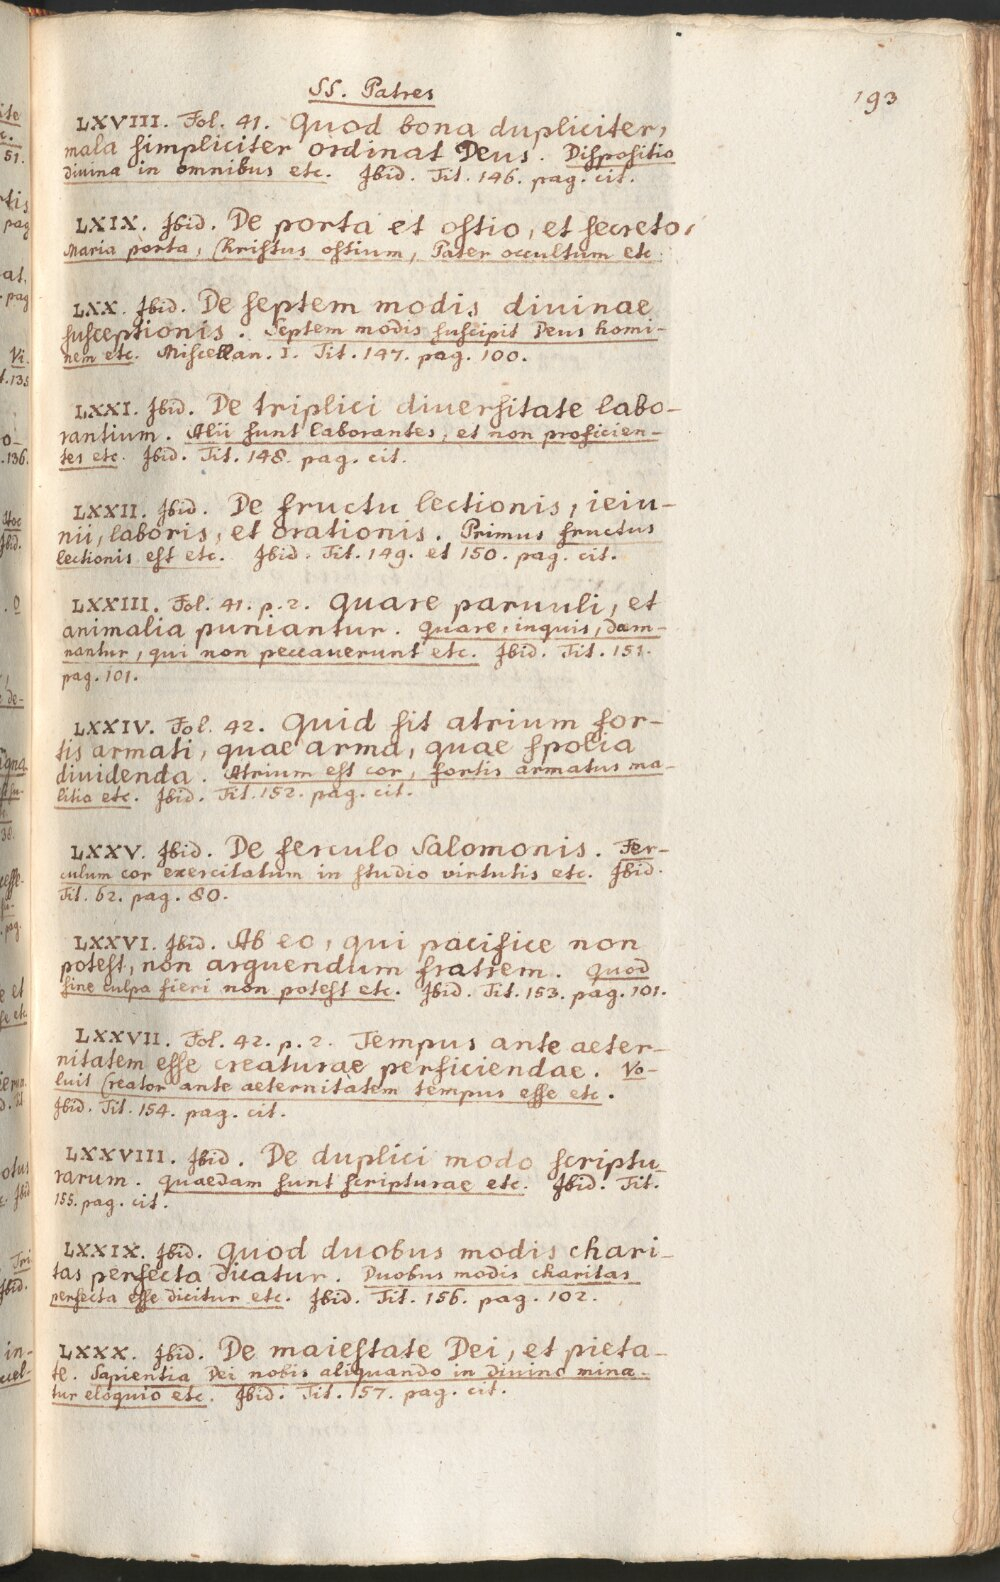 SS. Patres
193
LXVIII. Fol. 41. Quod bona dupliciter,
mala simpliciter ordinat Deus. Dispositio
diuina in omnibus etc. Ibid. Tit. 146. pag. cit.
LXIX. Ibid. De porta et ostio, et secreto,
Maria porta, Christus ostium, Pater occultum etc.
LXX. Ibid. De septem modis diuinae
susceptionis. Septem modis suscipit Deus homi-
nem etc. Miscellan. I. Tit. 147. pag. 100.
LXXI. Ibid. De triplici diuersitate labo-
rantium. Alii sunt laborantes, et non proficien-
tes etc. Ibid. Tit. 148. pag. cit.
LXXII. Ibid. De fructu lectionis, ieiu-
nii, laboris, et orationis. Primus fructus
lectionis est etc. Ibid. Tit. 149. et 150. pag. cit.
LXXIII. Fol. 41. p. 2. Quare paruuli, et
animalia puniantur. Quare, inquis, dam-
nantur, qui non peccauerunt etc. Ibid. Tit. 151.
pag. 101.
LXXIV. Fol. 42. Quid sit atrium for-
tis armati, quae arma, quae spolia
diuidenda. Atrium est cor, fortis armatus ma-
litia etc. Ibid. Tit. 152. pag. cit.
LXXV. Ibid. De ferculo Salomonis. Fer-
culum cor exercitatum in studio virtutis etc. Ibid.
Tit. 62. pag. 80.
LXXVI. Ibid. Ab eo, qui pacifice non
potest, non arguendum fratrem. Quod
sine culpa fieri non potest etc. Ibid. Tit. 153. pag. 101.
LXXVII. Fol. 42. p. 2. Tempus ante aeter-
nitatem esse creaturae perficiendae. Vo-
luit Creator ante aeternitatem tempus esse etc.
Ibid. Tit. 154. pag. cit.
LXXVIII. Ibid. De duplici modo scriptu-
rarum. Quaedam sunt scripturae etc. Ibid. Tit.
155. pag. cit.
LXXIX. Ibid. Quod duobus modis chari-
tas perfecta dicatur. Duobus modis charitas
perfecta esse dicitur etc. Ibid. Tit. 156. pag. 102.
LXXX. Ibid. De maiestate Dei, et pieta-
te. Sapientia Dei nobis aliquando in diuino mina-
tur eloquio etc. Ibid. Tit. 157. pag. cit.